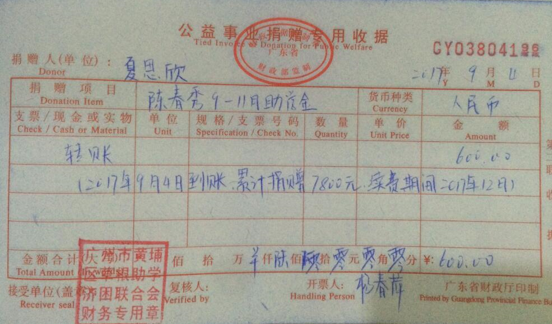 公益事业捐赠专用收据
Tied Invoice of Donation for Public Welfare
广东省
财政部监制
CY0380412
捐赠人(单位): 夏思欣
Donor
2017年 9月 11日
Y M D
捐赠项目 陈春秀9-11月助学金 货币种类 人民币
Donation Item Currency
支票/现金或实物 单位 规格/支票号码 数量 单价 金额
Check / Cash or Material Unit Specification / Check No. Quantity Unit Price Amount
转账 600.00
(2017年9月4日到账.累计捐赠7800元.续费期间2017年12月)
金额合计(大写) 佰 拾 万 仟 陆佰 零拾 零元 零角 零分 ¥: 600.00
Total Amount
接受单位(盖章) 复核人: 开票人: 广东省财政厅印制
Receiver seal Verified by Handling Person 春萍 Printed by Guangdong Provincial Finance
广州市黄埔
区草根助学
济困联合会
财务专用章